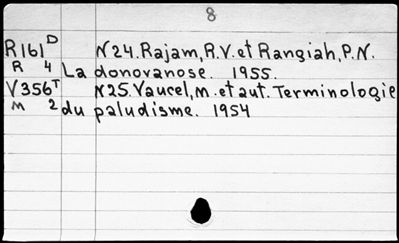 8
R161D N24. Rajam, R.V. et Rangiah, P.N.
R 4 La donovanose. 1955.
V356T N25. Vaucel, M. et aut. Terminologie
M 2 du paludisme. 1954